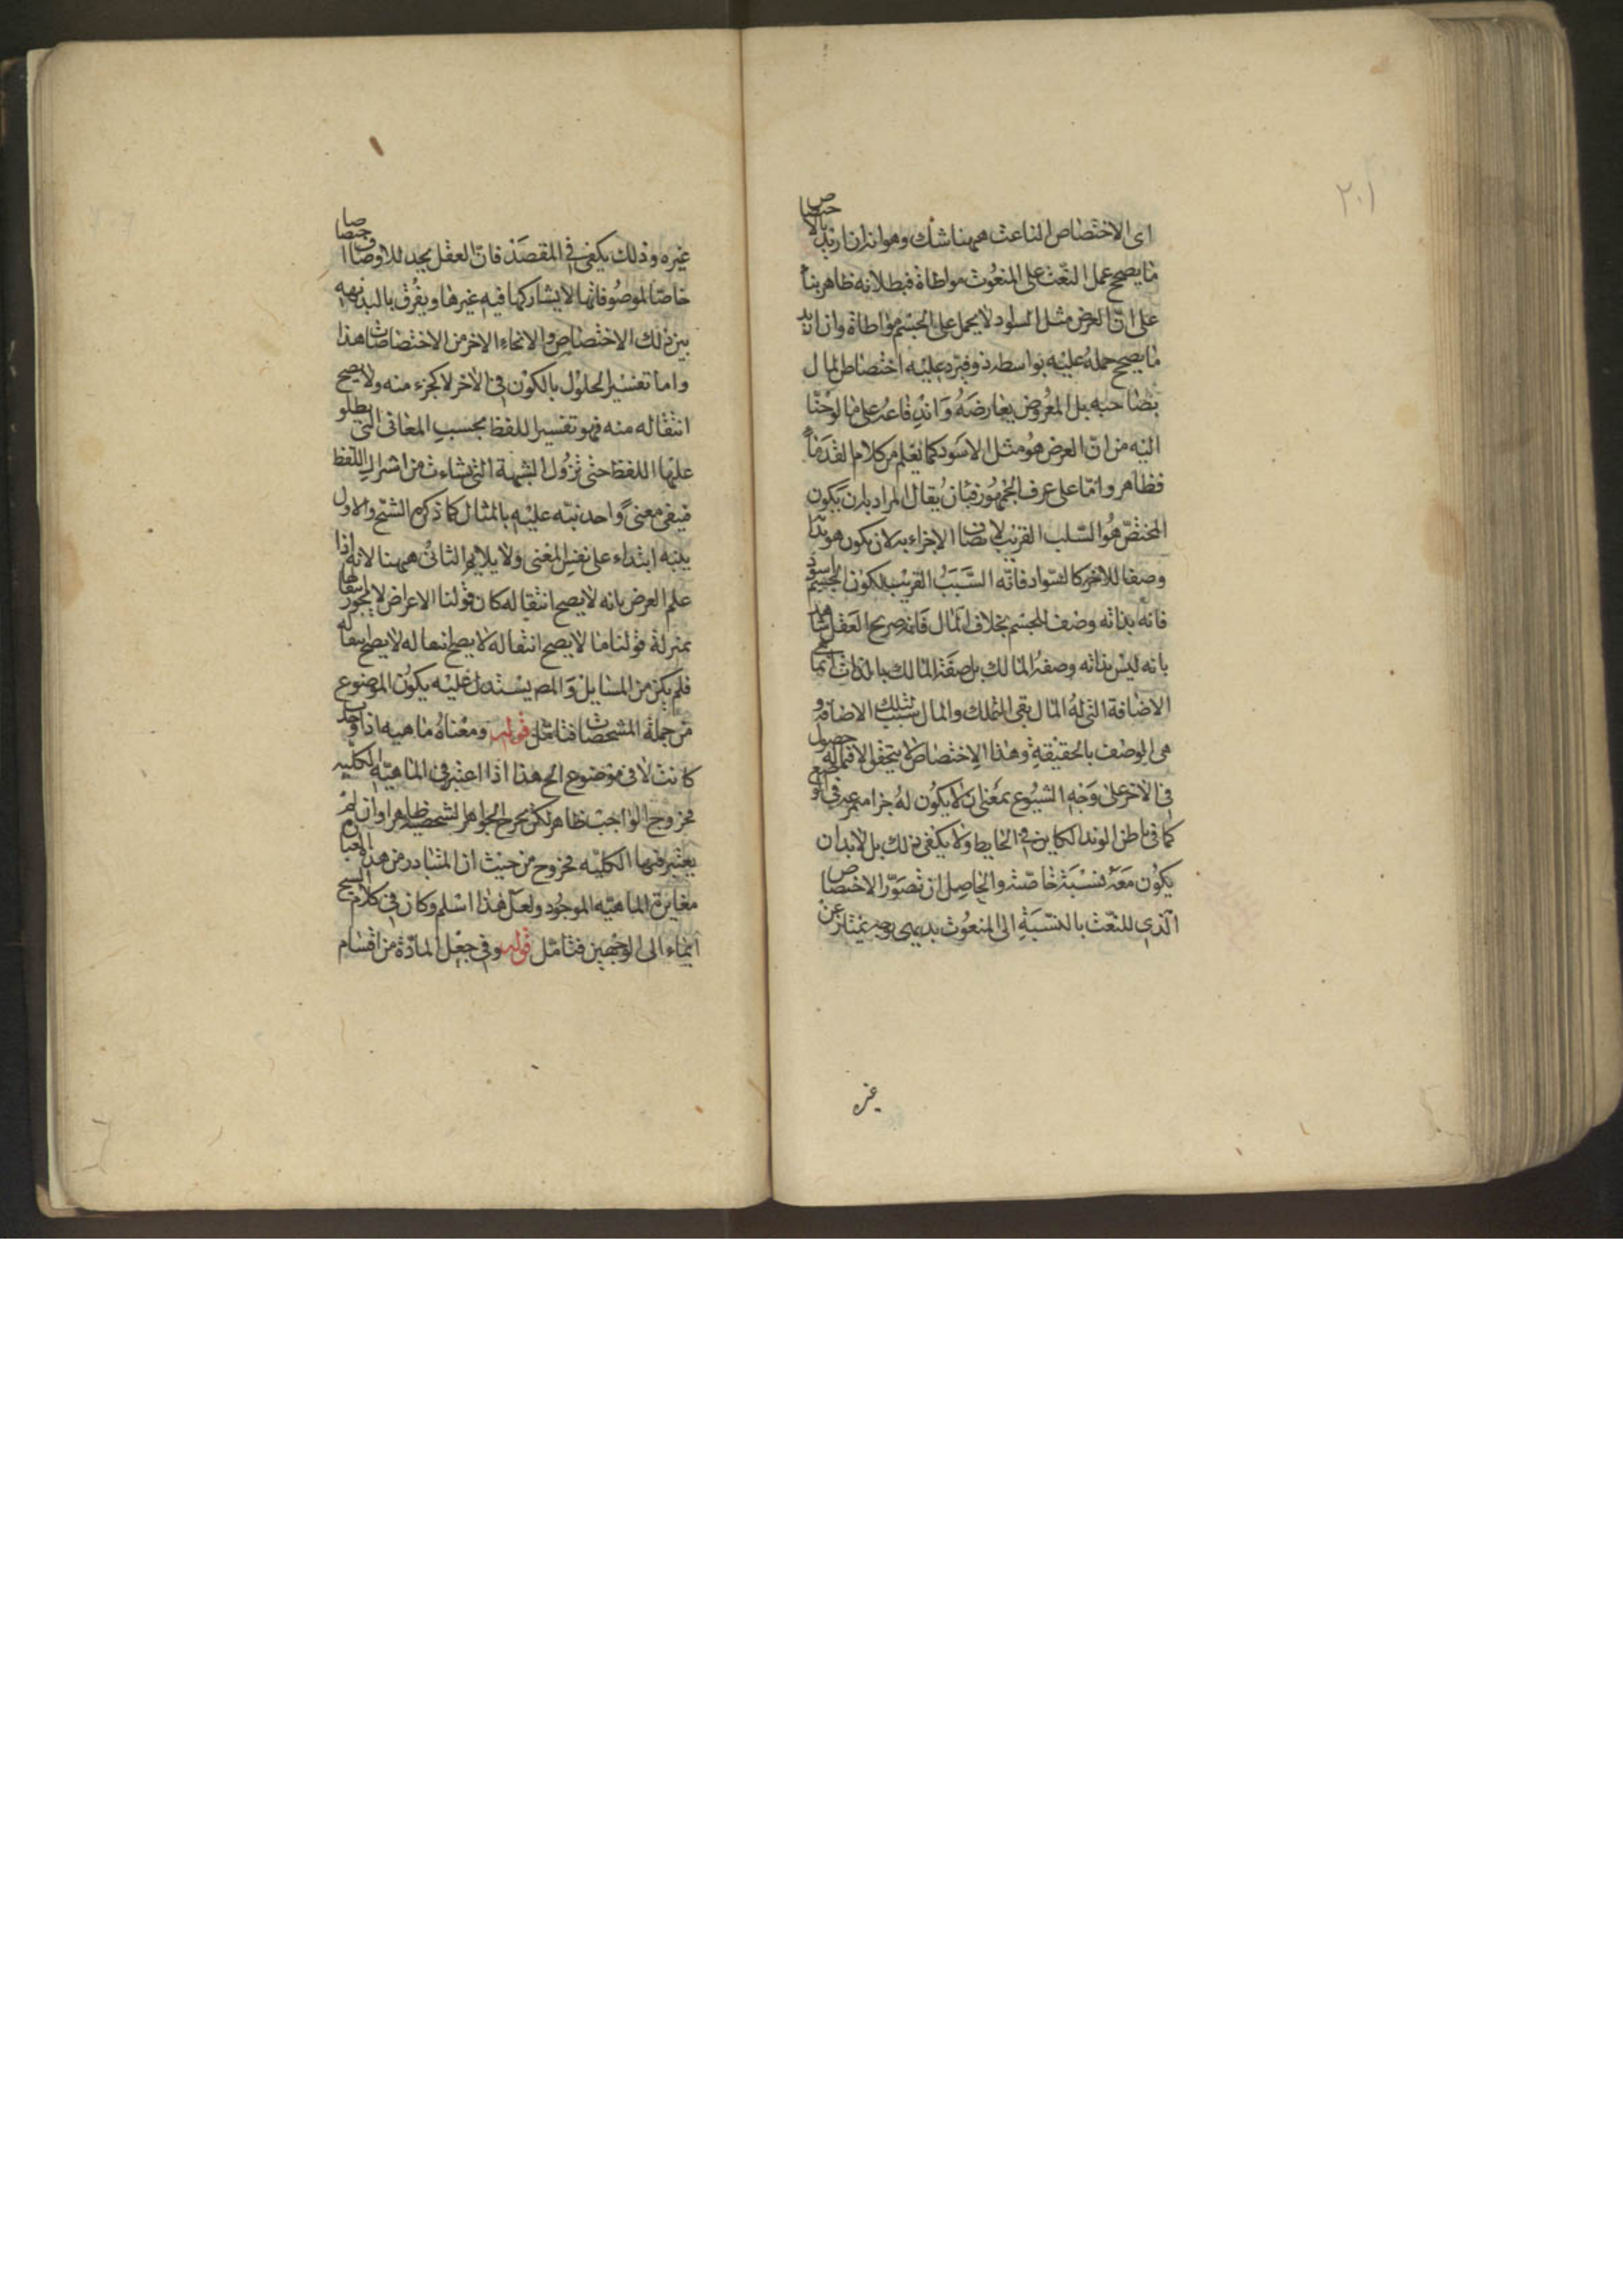 ٢٠١
اى الاختصاص الناعت ههنا شك وهو انه ان اريد بالاختصاص
ما يصحح حمل النعت على المنعوت مواطاة فبطلانه ظاهر بناء
على ان العرض مثل السواد لا يحمل على الجسم مواطاة وان اريد
ما يصحح حمله عليه بواسطة ذو فيرد عليه اختصاص المال
بصاحبه بل المعروض بعارضه واندفاعه على ما لوحنا
اليه من ان العرض هو مثل الاسود كما يعلم من كلام القدماء
فظاهر واما على عرف الجمهور فبان يقال المراد بان يكون
المختص هو السبب القريب لاتصاف الاخر به لان يكون هو بذاته
وصفا للاخر كالسواد فانه السبب القريب لكون الجسم اسود
فانه بذاته وصف الجسم بخلاف المال فانه صريح العقل شاهد
بانه ليس بذاته وصفه المالك بل صفة المالك بالذات انما
الاضافة التى له المال بقى التملك والمال بسبب تلك الاضافة و
هى الوصف بالحقيقة وهذا الاختصاص لا يتحقق الا فيما له حصول
فى الاخر على وجه الشيوع بمعنى ان لا يكون له جزا متميز فى
كما فى باطن الوتد الكاين فى الحايط ولا يكفى ذلك بل لابد ان
يكون معه نسبة خاصة والحاصل ان تصور الاختصاص
الذى للنعت بالنسبة الى المنعوت بديهى بوجه يمتاز عن
غيره
غيره وذلك يكفى فى المقصد فان العقل يجد للاوصاف اختصاصا
خاصا لموصوفاتها لا يشاركها فيه غيرها ويفرق بالبديهه
بين ذلك الاختصاص والانحاء الاخر من الاختصاصات هذا
واما تفسير الحلول بالكون فى الاخر لا كجزء منه ولا يصح
انتقاله منه فهو تفسير اللفظ بحسب المعانى التى يطلق
عليها اللفظ حتى تزول الشبهة التى نشاءت من اشتراك اللفظ
فيبقى معنى واحد نبه عليه بالمثال كما ذكره الشيخ والاول
ينبه ابتداء على نفس المعنى ولا يلايم الثانى ههنا لانه اذا
علم العرض بانه لا يصح انتقاله كان قولنا الاعراض لا يجوز انتقالها
بمنزلة قولنا ما لا يصح انتقاله لا يصح انتقاله لا يصح انتقاله
فلم يكن من المسايل والمصـ يستدل عليه بكون الموضوع
من جملة المشخصات فتامل قوله ومعناه ماهيه اذا وجدت
كانت لا فى موضوع الخ هذا اذا اعتبر فى الماهيه الكليه
فخروج الواجب ظاهر لكن يخرج الجواهر الشخصيه ظاهرا وان لم
يعتبر فيها الكليه فخروجه من حيث ان المتبادر من هذه العبارة
مغايرة الماهيه الموجود ولعل هذا اسلم وكان فى كلام الشيخ
ايماء الى الوجهين فتامل قوله وفى جعل المادة من اقسام